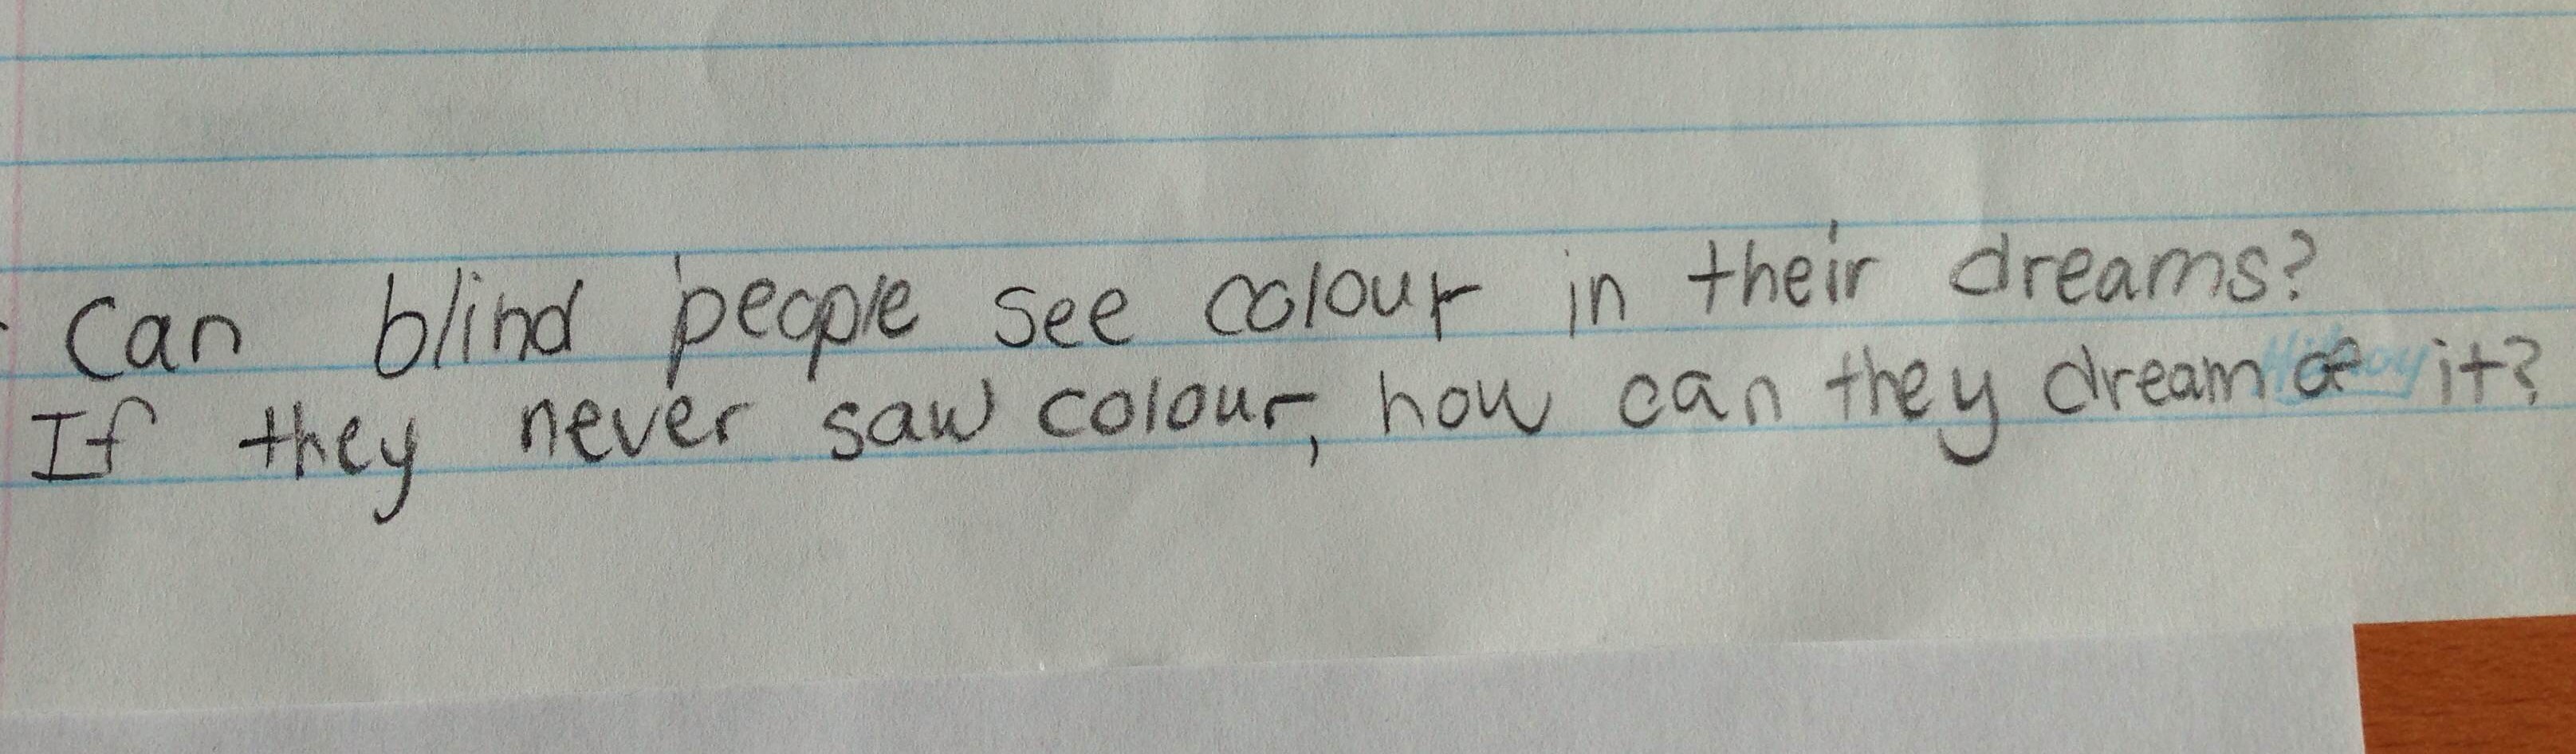 Can blind people see colour in their dreams?
If they never saw colour, how can they dream of it?